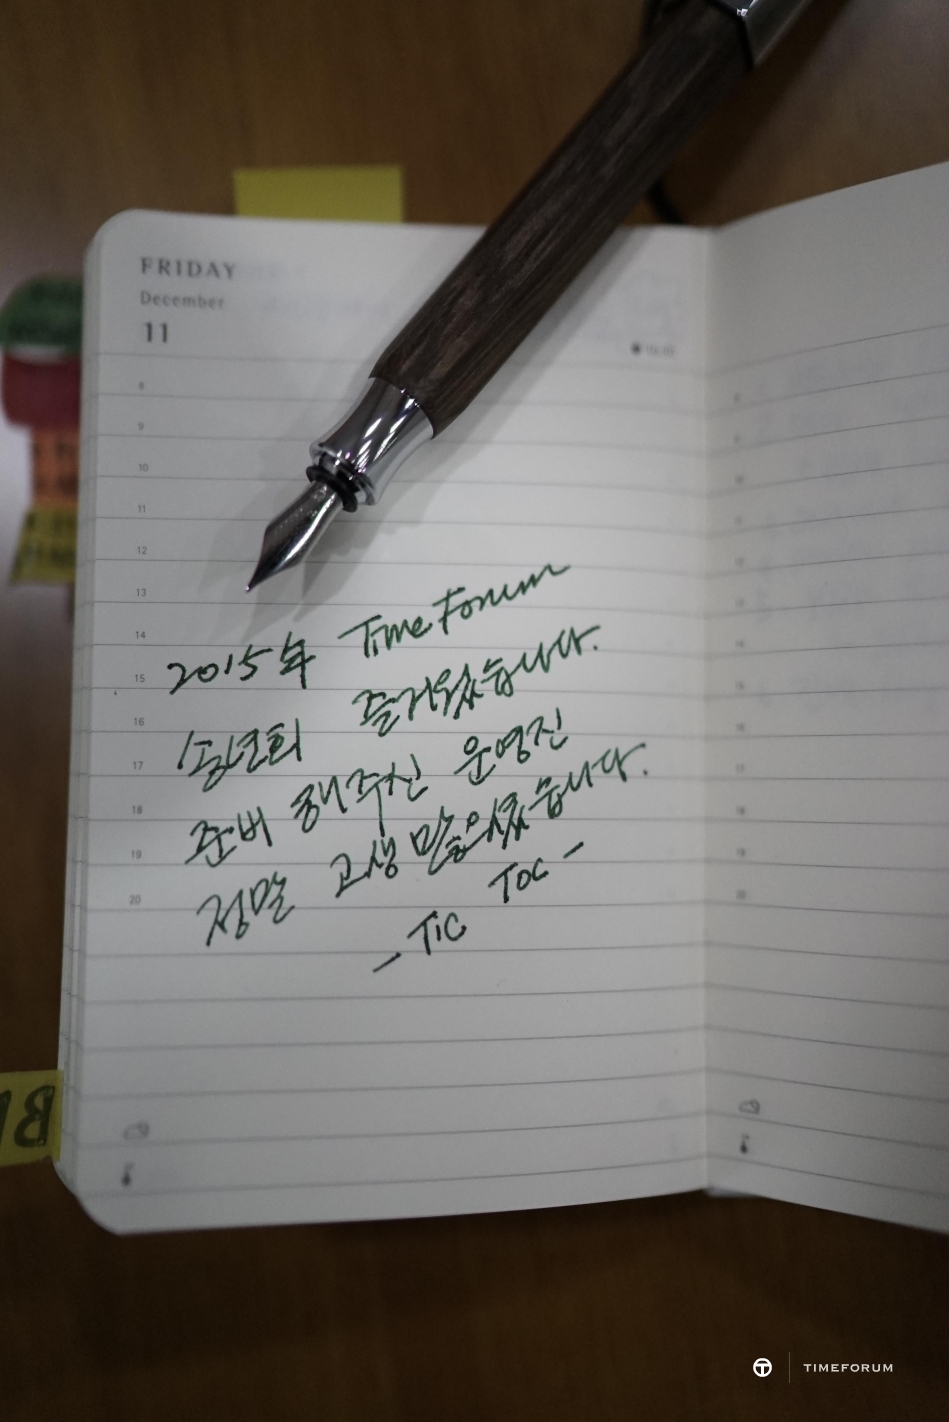 FRIDAY
December
11
8
9
10
11
12
13
14
15
16
17
18
19
20
2015年 TimeForum
송년회 즐거웠습니다.
준비 해주신 운영진
정말 고생 많으셨습니다.
- TIC TOC -
TIMEFORUM